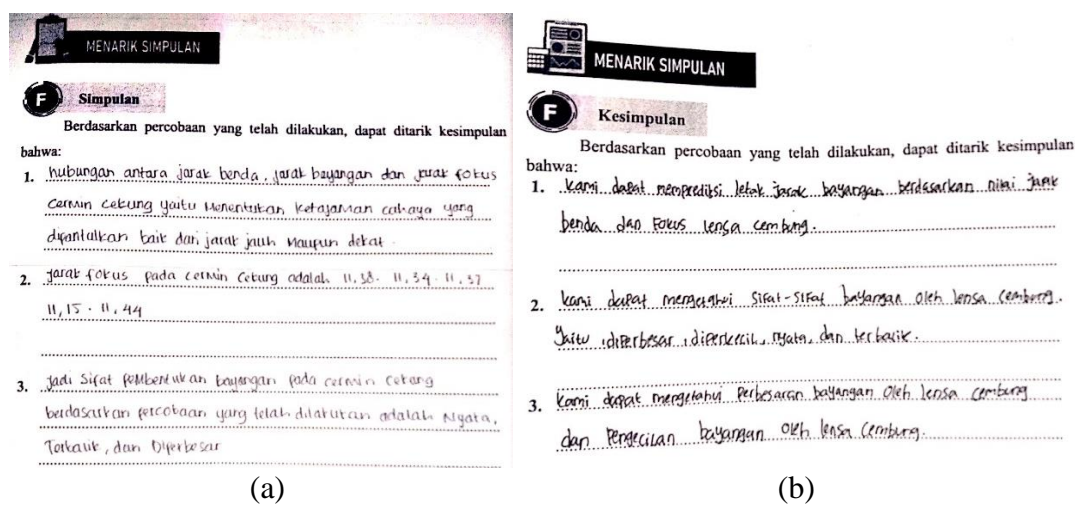 MENARIK SIMPULAN
F Simpulan
Berdasarkan percobaan yang telah dilakukan, dapat ditarik kesimpulan
bahwa:
1. hubungan antara jarak benda, jarak bayangan dan jarak fokus
cermin cekung yaitu Menentukan ketajaman cahaya yang
dipantulkan baik dari jarak jauh Maupun dekat.
2. jarak fokus pada cermin cekung adalah 11,38. 11,34. 11,37
11,15. 11,44
3. Jadi Sifat Pembentukan bayangan pada cermin cekung
berdasarkan percobaan yang telah dilakukan adalah Nyata,
Terbalik, dan Diperbesar
(a)
MENARIK SIMPULAN
F Kesimpulan
Berdasarkan percobaan yang telah dilakukan, dapat ditarik kesimpulan
bahwa:
1. kami dapat memprediksi letak jarak bayangan berdasarkan nilai jarak
benda dan Fokus lensa cembung.
2. kami dapat mengetahui Sifat-Sifat bayangan oleh lensa cembung.
Yaitu, diperbesar, diperkecil, nyata, dan terbalik.
3. kami dapat mengetahui Perbesaran bayangan Oleh lensa cembung
dan Pengecilan bayangan oleh lensa Cembung.
(b)